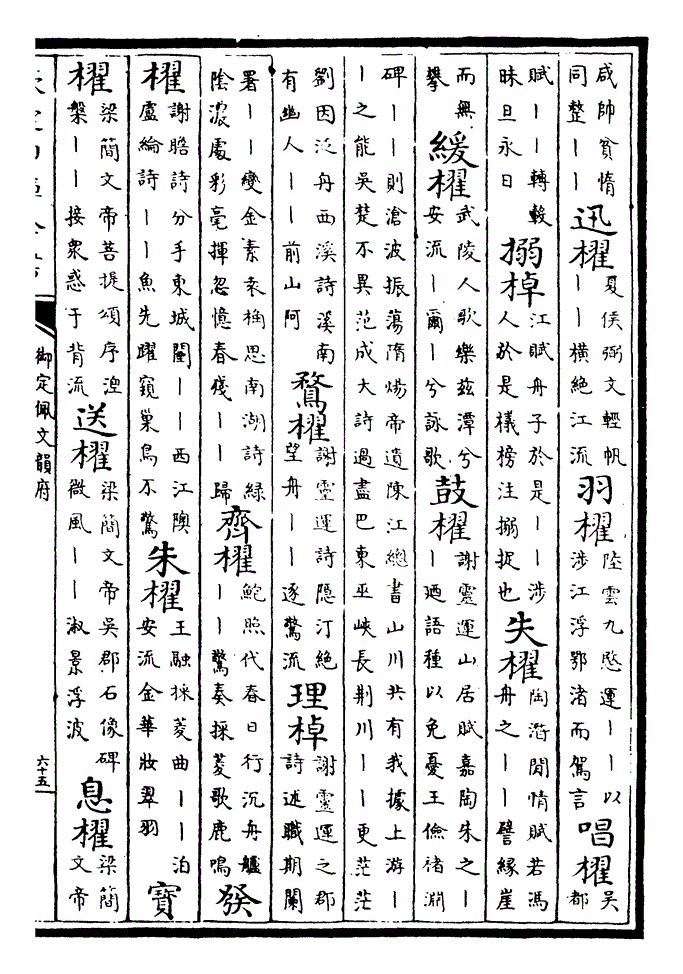 咸帥貧惰同整丨丨迅櫂夏侯弼文輕帆丨丨橫絕江流羽櫂陸雲九愍運丨丨以涉江浮鄂渚而駕言唱櫂吳都
賦丨丨轉轂昧旦永日搦棹江賦舟子於是丨丨涉人於是檥榜注搦捉也失櫂陶潛閒情賦若馮舟之丨丨譬緣崖
而無攀緩櫂武陵人歌樂兹潭兮安流丨爾丨兮詠歌鼓櫂謝靈運山居賦嘉陶朱之丨丨迺語種以免憂王儉褚淵
碑丨丨則滄波振蕩隋煬帝遺陳江總書山川共有我據上游丨丨之能吳楚不異范成大詩過盡巴東巫峽長荆川丨丨更茫茫
劉因泛舟西溪詩溪南有幽人丨丨前山阿鶩櫂謝靈運詩隱汀絕望舟丨丨逐驚流理棹謝靈運之郡詩述職期闌
署丨丨變金素袁桷思南湖詩緑陰濃處彩毫揮忽憶春殘丨丨歸齊櫂鮑照代春日行沉舟艫丨丨驚奏採菱歌鹿鳴發
櫂謝瞻詩分手東城闉丨丨西江隩盧綸詩丨丨魚先躍窺巢鳥不驚朱櫂王融採菱曲丨丨泊安流金華妝翠羽寶
櫂梁簡文帝菩提頌序湟槃丨丨接衆惑于背流送櫂梁簡文帝吳郡石像碑微風丨丨淑景浮波息櫂梁簡文帝
御定佩文韻府
六十五